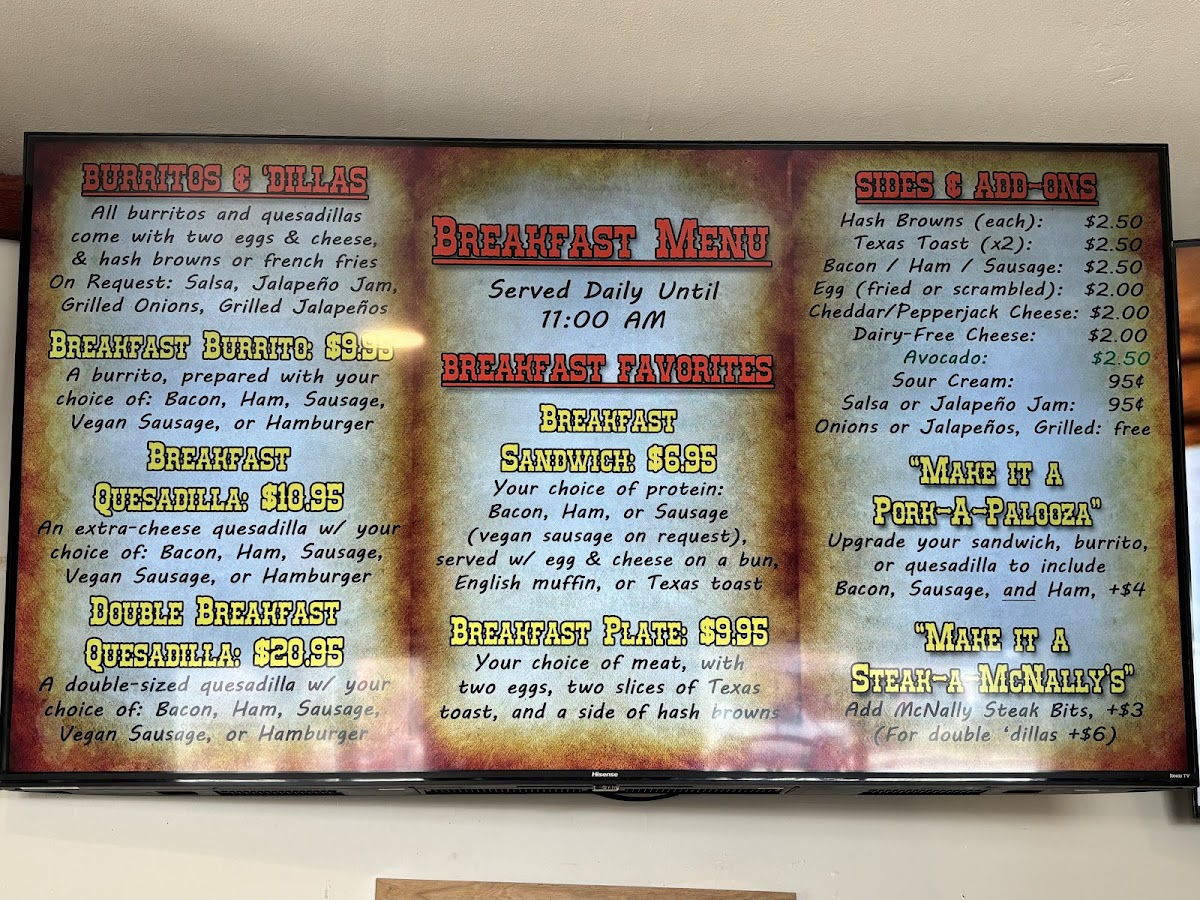 BURRITOS & 'DILLAS
All burritos and quesadillas
come with two eggs & cheese,
& hash browns or french fries
On Request: Salsa, Jalapeño Jam,
Grilled Onions, Grilled Jalapeños
BREAKFAST BURRITO: $9.95
A burrito, prepared with your
choice of: Bacon, Ham, Sausage,
Vegan Sausage, or Hamburger
BREAKFAST
QUESADILLA: $10.95
An extra-cheese quesadilla w/ your
choice of: Bacon, Ham, Sausage,
Vegan Sausage, or Hamburger
DOUBLE BREAKFAST
QUESADILLA: $20.95
A double-sized quesadilla w/ your
choice of: Bacon, Ham, Sausage,
Vegan Sausage, or Hamburger
BREAKFAST MENU
Served Daily Until
11:00 AM
BREAKFAST FAVORITES
BREAKFAST
SANDWICH: $6.95
Your choice of protein:
Bacon, Ham, or Sausage
(vegan sausage on request),
served w/ egg & cheese on a bun,
English muffin, or Texas toast
BREAKFAST PLATE: $9.95
Your choice of meat, with
two eggs, two slices of Texas
toast, and a side of hash browns
SIDES & ADD-ONS
Hash Browns (each): $2.50
Texas Toast (x2): $2.50
Bacon / Ham / Sausage: $2.50
Egg (fried or scrambled): $2.00
Cheddar/Pepperjack Cheese: $2.00
Dairy-Free Cheese: $2.00
Avocado: $2.50
Sour Cream: 95¢
Salsa or Jalapeño Jam: 95¢
Onions or Jalapeños, Grilled: free
"MAKE IT A
PORK-A-PALOOZA"
Upgrade your sandwich, burrito,
or quesadilla to include
Bacon, Sausage, and Ham, +$4
"MAKE IT A
STEAK-A-MCNALLY'S"
Add McNally Steak Bits, +$3
(For double 'dillas +$6)
Hisense
Roku TV